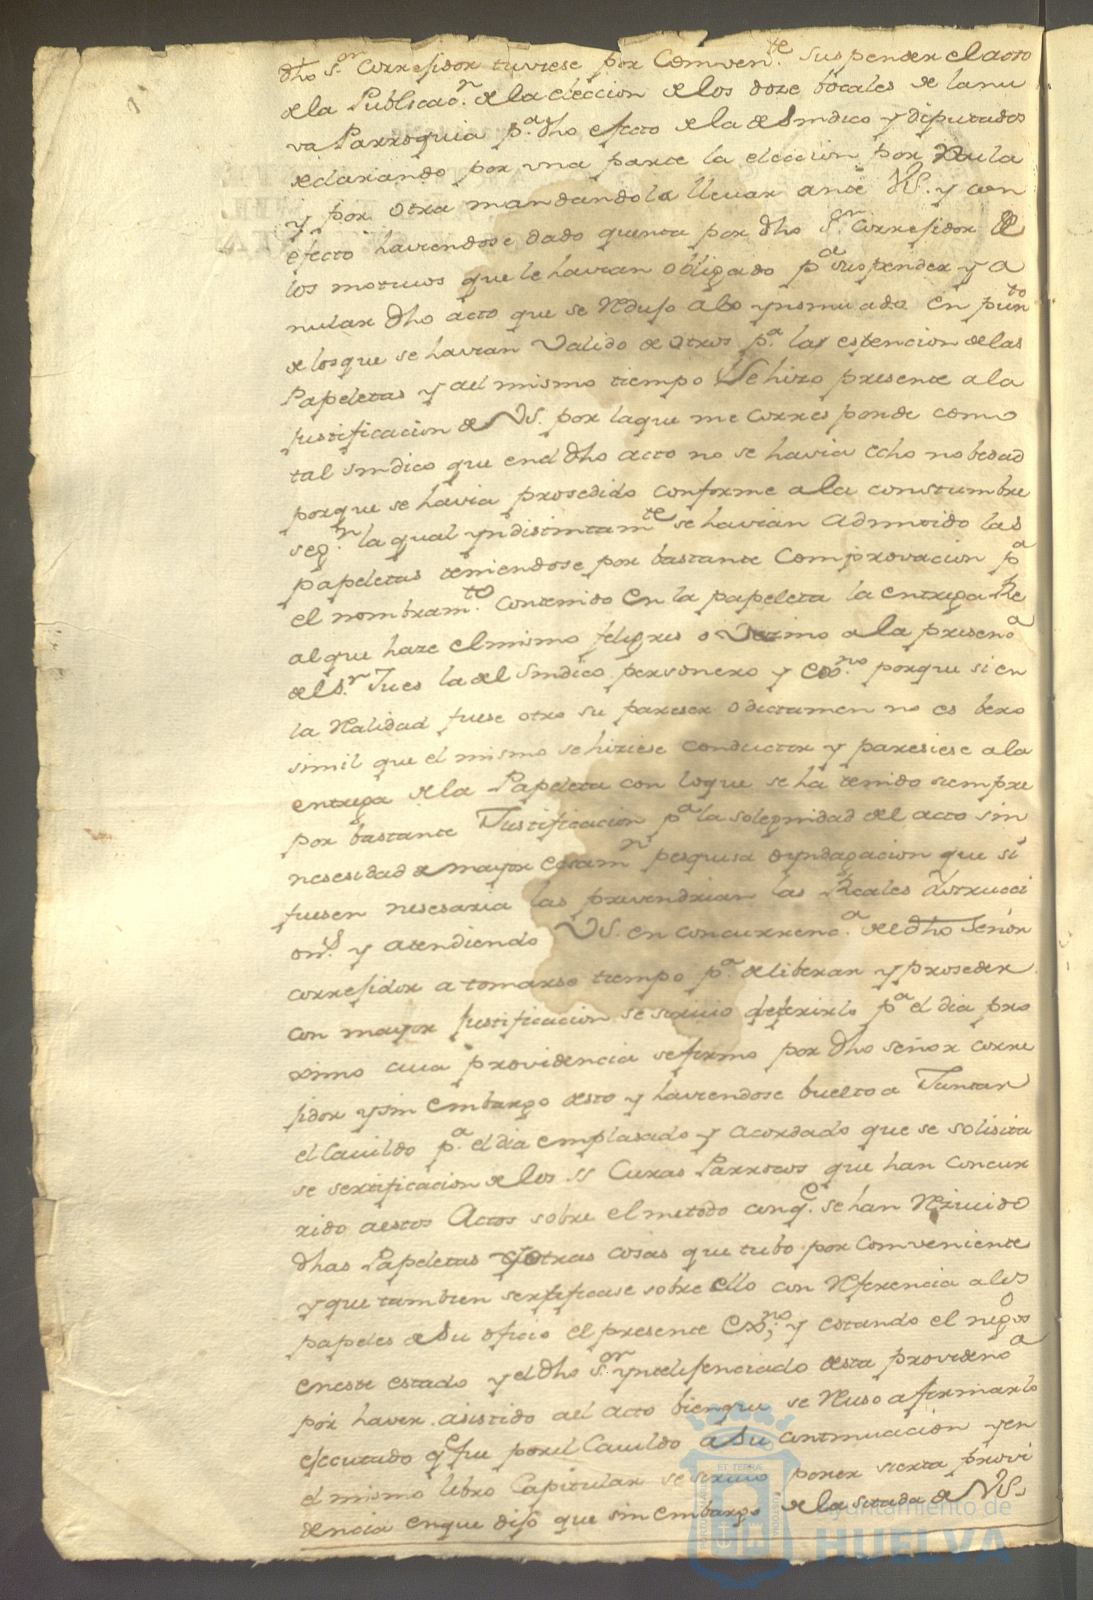 dho S.or Corresidor tuviese por Comven.te suspender el acto
de la Publicac.n de la eleccion de los doze bocales de la nu
va Parroquia p.a dho efecto de la de Sindico y diputados
declarando por una parte la eleccion por Nula
y por otra mandandola llevar ante VS. y con
efecto haviendose dado quenta por dho S.or Corresidor de
los motivos que le havian obligado p.a suspender y a
nular dho acto que se Redujo a lo ynsinuado en pun.to
de los que se havian Valido de otros p.a las estencion de las
Papeletas y al mismo tiempo Se hizo presente a la
justificacion de VS. por la que me corresponde como
tal sindico que en el dho acto no se havia echo nobedad
porque se havia prosedido conforme a la constumbre
seg.n la qual yndistintam.te se havian admitido las
papeletas teniendose por bastante Comprovacion p.a
el nombram.to contenido en la papeleta la entrega Re
al que haze el mismo feligres o Vezino a la presen.a
del S.r Jues la del Sindico personero y es.no porque si en
la Realidad fuese otro su pareser o dictamen no es bero
simil que el mismo se hiziese conductor y paresiese a la
entrega de la Papeleta con lo que se ha tenido siempre
por bastante Justificacion p.a la solegnidad del acto sin
nesesidad de mayor esam.n pesquisa o yndagacion que si
fuesen nesesaria las prevendrian las Reales Ynstrucci
on.s y atendiendo VS. en concurrenc.a de el dho Señor
corresidor a tomarse tiempo p.a deliberar y proseder
con mayor justificacion se sirvio deferirlo p.a el dia pro
ximo cuia providencia se firmo por dho señor corre
sidor y sin embargo desto y haviendose buelto a Juntar
el Cavildo p.a el dia emplasado y acordado que se solisita
se sertificacion de los SS Curas Parrocos que han concur
rido a estos Actos sobre el metodo con q.e se han Resivido
dhas Papeletas y otras cosas que tubo por conveniente
y que tambien sertificase sobre ello con Referencia a los
papeles de su oficio el presente es.no y estando el nego.o
en este estado y el dho S.or yntelisenciado desta providen.a
por haver asistido al acto bien que se Reuso a firmarlo
ejecutado q.e fue por el Cavildo a su continuacion y en
el mismo libro Capitular se sirvio poner sierta provi
dencia en que dijo que sin embargo de la sitada de VS.
Ayuntamiento de
HUELVA